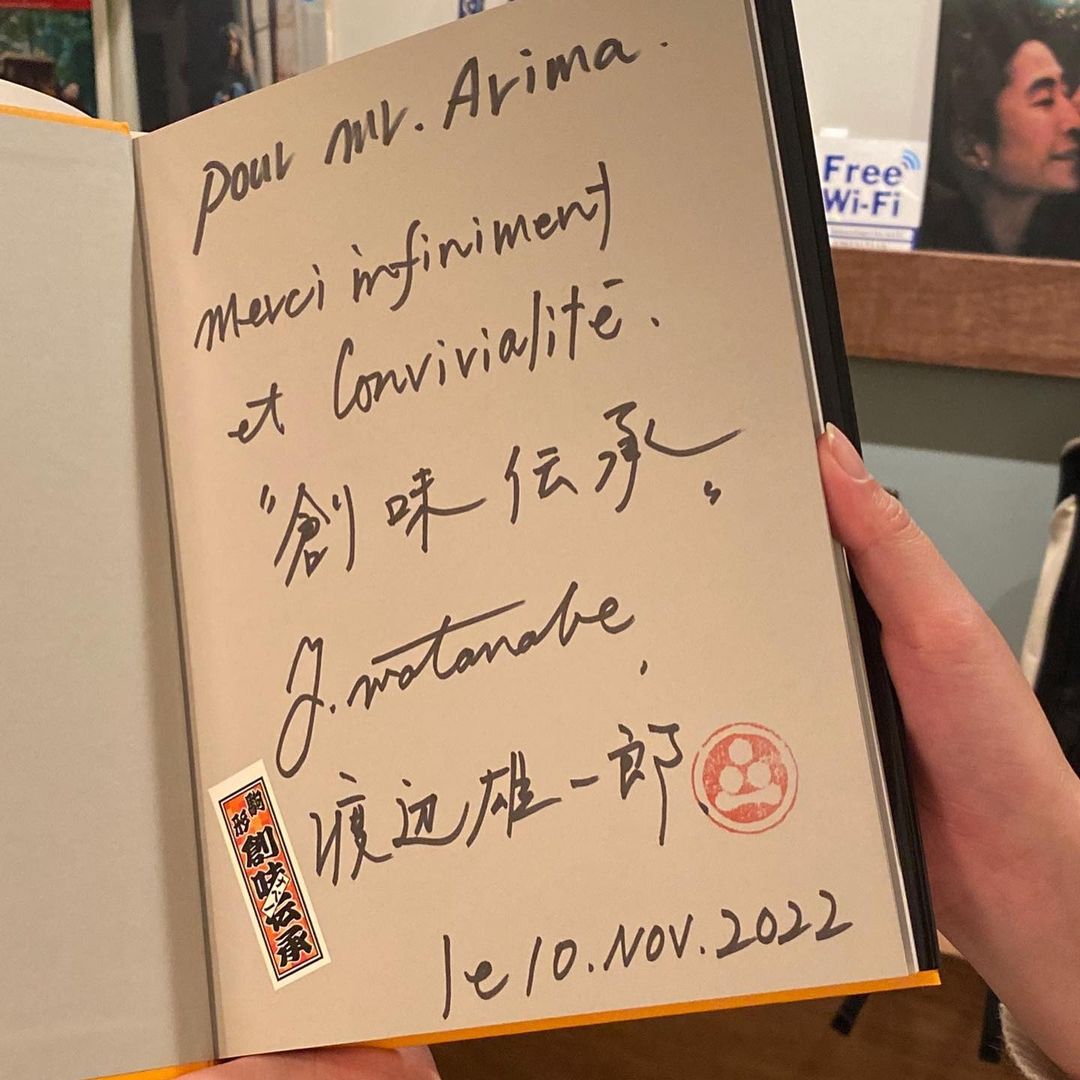 pour Mr. Arima.
merci infiniment
et Convivialité.
"創味伝承"
Y. Watanabe,
渡辺雄一郎
le 10. Nov. 2022
駒形
創味伝承
Free
Wi-Fi